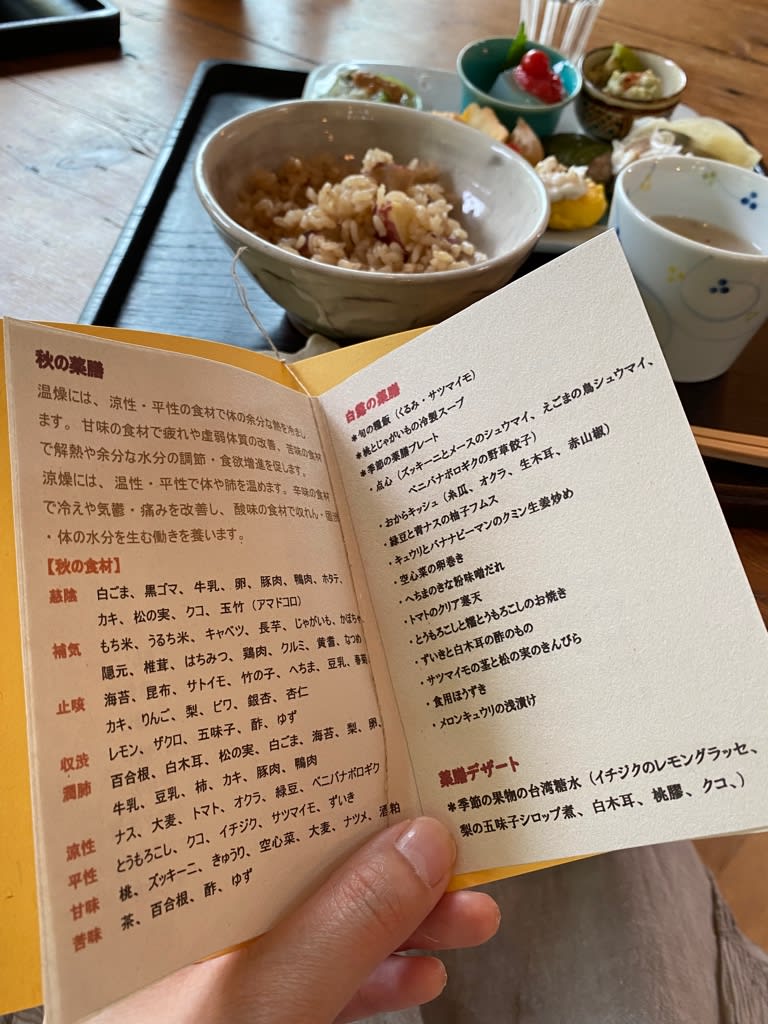 秋の薬膳
温燥には、涼性・平性の食材で体の余分な熱を冷まし
ます。甘味の食材で疲れや虚弱体質の改善、苦味の食材
で解熱や余分な水分の調節・食欲増進を促します。
涼燥には、温性・平性で体や肺を温めます。辛味の食材
で冷えや気鬱・痛みを改善し、酸味の食材で収れん・固渋
・体の水分を生む働きを養います。
【秋の食材】
慈陰 白ごま、黒ゴマ、牛乳、卵、豚肉、鴨肉、ホタテ、
カキ、松の実、クコ、玉竹（アマドコロ）
補気 もち米、うるち米、キャベツ、長芋、じゃがいも、かぼちゃ、
隠元、椎茸、はちみつ、鶏肉、クルミ、黄耆、なつめ
止咳 海苔、昆布、サトイモ、竹の子、へちま、豆乳、春菊
カキ、りんご、梨、ビワ、銀杏、杏仁
収渋 レモン、ザクロ、五味子、酢、ゆず
潤肺 百合根、白木耳、松の実、白ごま、海苔、梨、卵、
牛乳、豆乳、柿、カキ、豚肉、鴨肉
涼性 ナス、大麦、トマト、オクラ、緑豆、ベニバナボロギク
平性 とうもろこし、クコ、イチジク、サツマイモ、ずいき
甘味 桃、ズッキーニ、きゅうり、空心菜、大麦、ナツメ、酒粕
苦味 茶、百合根、酢、ゆず
白露の薬膳
＊旬の種飯（くるみ・サツマイモ）
＊桃とじゃがいもの冷製スープ
＊季節の薬膳プレート
・点心（ズッキーニとメースのシュウマイ、えごまの鳥シュウマイ、
ベニバナボロギクの野草餃子）
・おからキッシュ（糸瓜、オクラ、生木耳、赤山椒）
・緑豆と青ナスの柚子フムス
・キュウリとバナナピーマンのクミン生姜炒め
・空心菜の卵巻き
・へちまのきな粉味噌だれ
・トマトのクリア寒天
・とうもろこしと糯とうもろこしのお焼き
・ずいきと白木耳の酢のもの
・サツマイモの茎と松の実のきんぴら
・食用ほうずき
・メロンキュウリの浅漬け
薬膳デザート
＊季節の果物の台湾糖水（イチジクのレモングラッセ、
梨の五味子シロップ煮、白木耳、桃膠、クコ、）